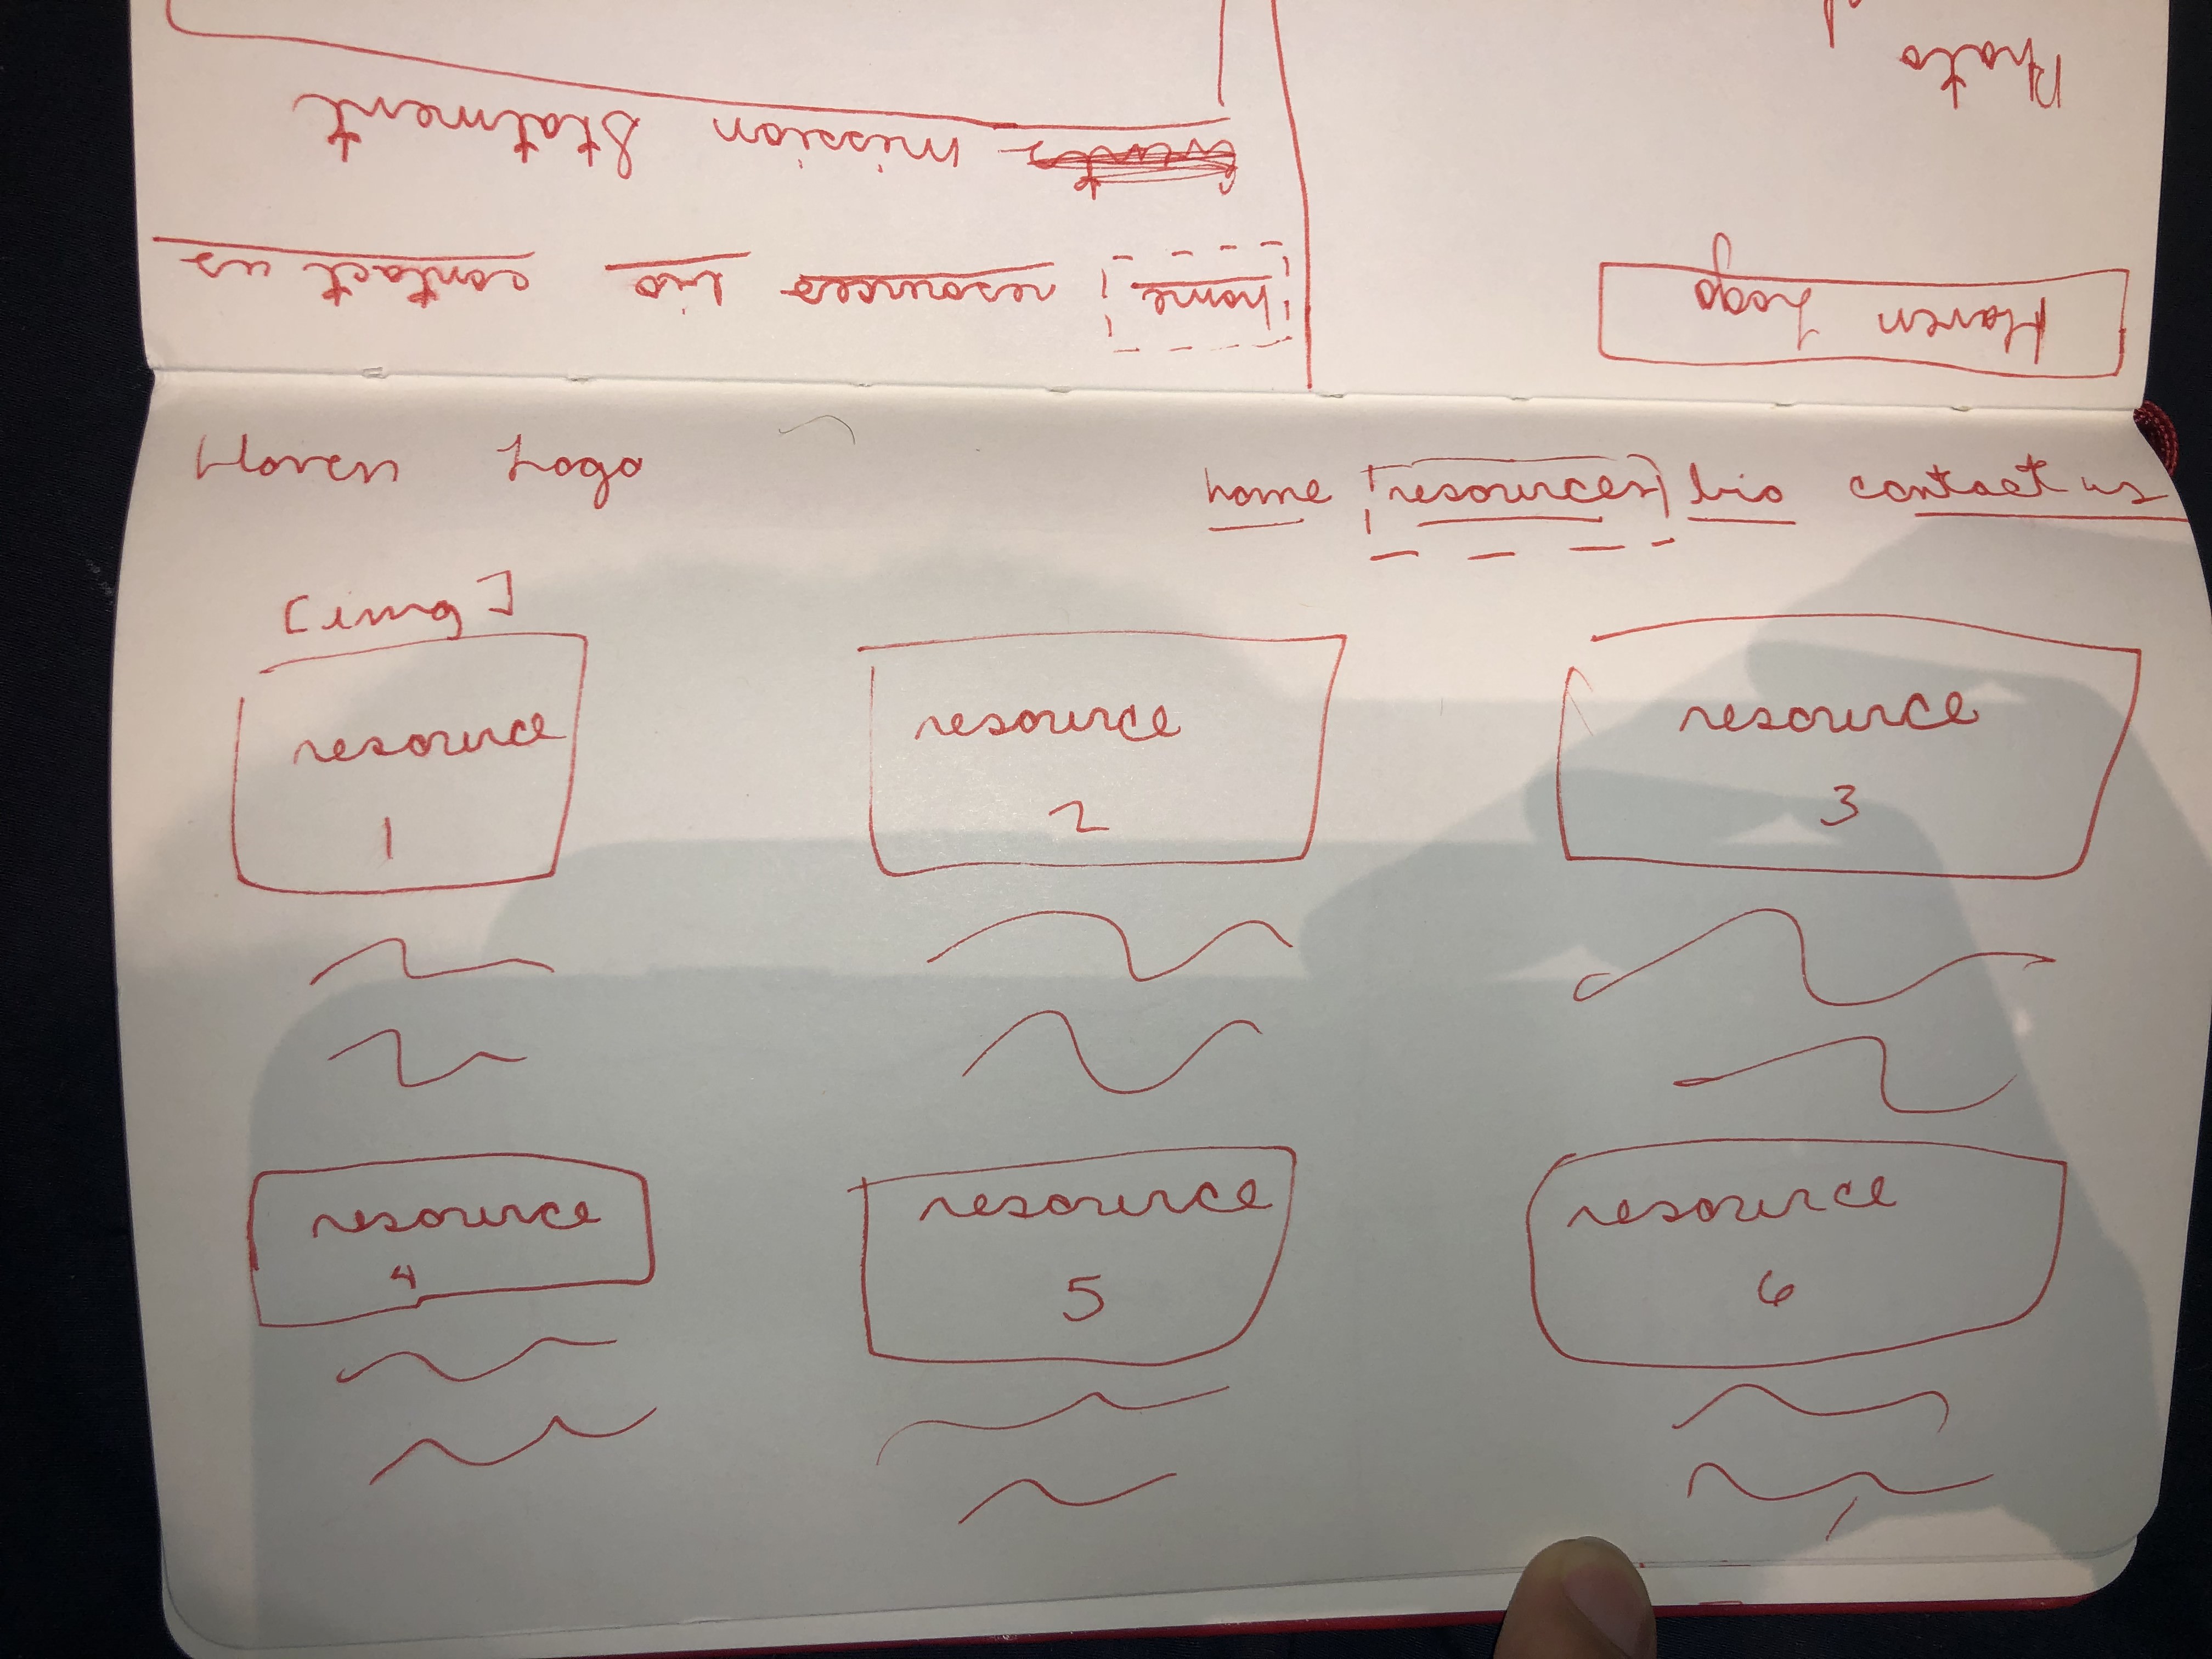 Haven Logo home resources bio contact us
[img]
resource resource resource
1 2 3
resource resource resource
4 5 6
Haven Logo home resources bio contact us
Photo mission Statment